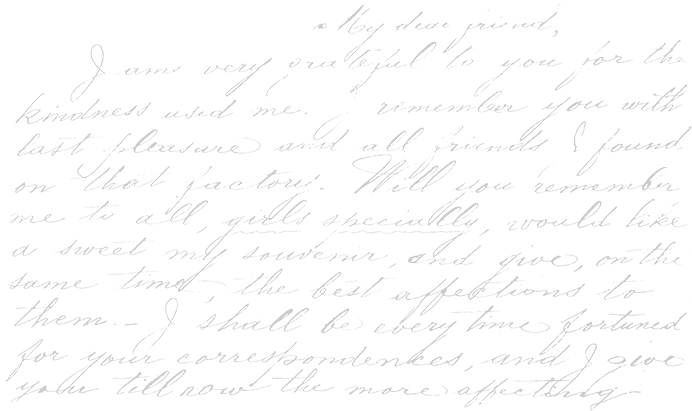 My dear friend,
I am very grateful to you for the
kindness used me. I remember you with
last pleasure and all friends I found
on that factory. Will you remember
me to all, girls specially, would like
a sweet my souvenir, and give, on the
same time, the best affections to
them. - I shall be every time fortuned
for your correspondences, and I give
you till now the more affecting -